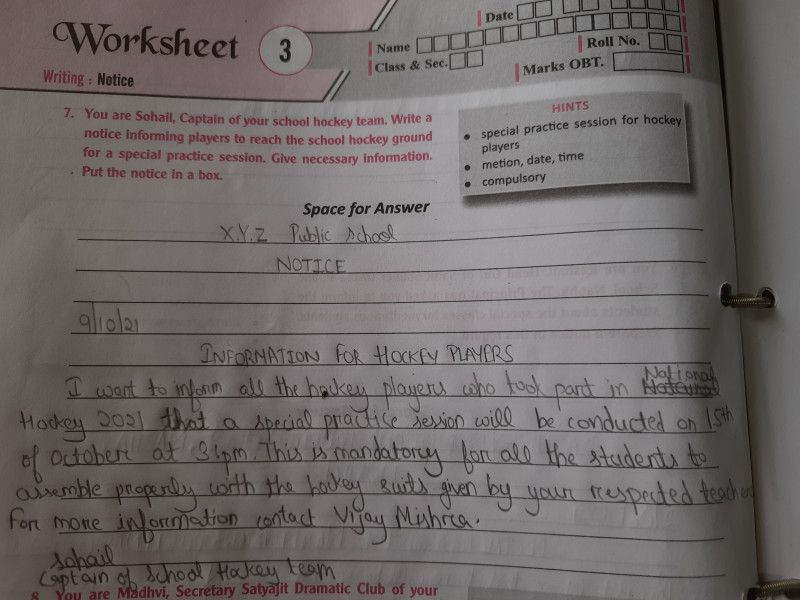 Worksheet 3
Date
Name
Roll No.
Class & Sec.
Marks OBT.
Writing : Notice
7. You are Sohail, Captain of your school hockey team. Write a
notice informing players to reach the school hockey ground
for a special practice session. Give necessary information.
Put the notice in a box.
HINTS
• special practice session for hockey
players
• metion, date, time
• compulsory
Space for Answer
X.Y.Z Public School
NOTICE
9/10/21
INFORMATION FOR HOCKEY PLAYERS
I want to inform all the hockey players who took part in National
Hockey 2021 that a special practice session will be conducted on 15th
of october at 3 pm. This is mandatory for all the students to
assemble properly with the hockey suits given by your respected teacher
For more information contact Vijay Mishra.
Sohail
Captain of School Hockey team
8. You are Madhvi, Secretary Satyajit Dramatic Club of your